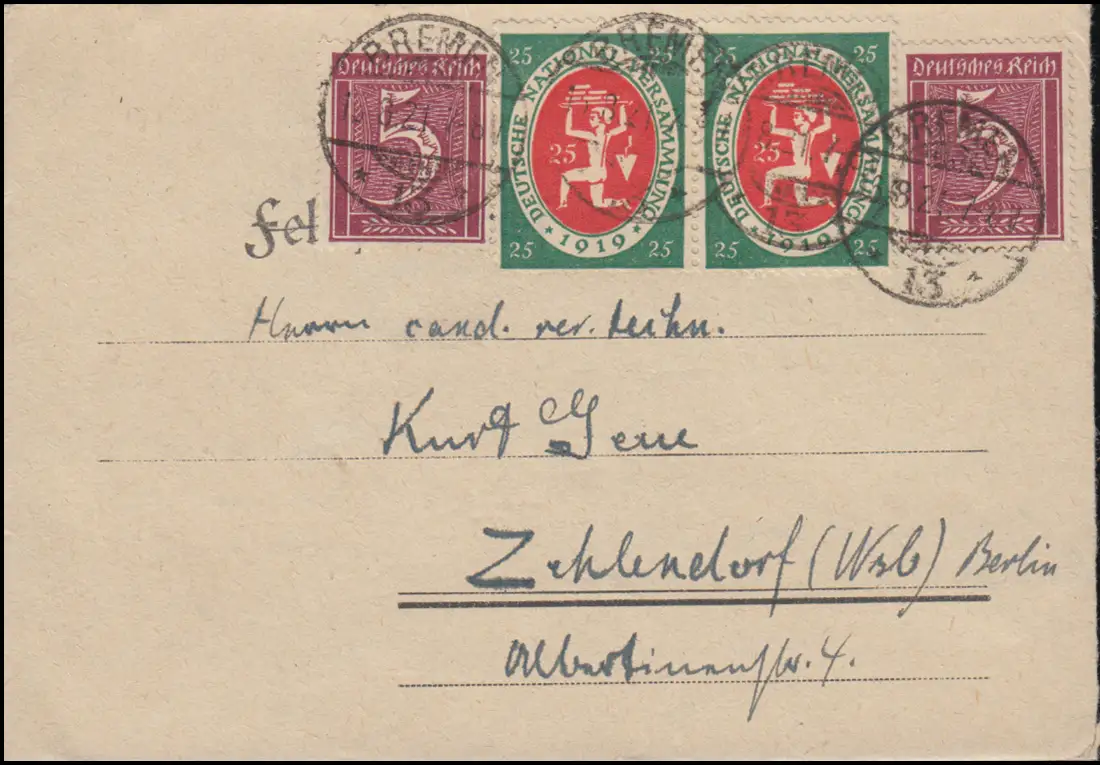 Deutsches Reich
5
25 25
DEUTSCHE NATIONALVERSAMMLUNG
25
* 1919 *
25 25
25 25
DEUTSCHE NATIONALVERSAMMLUNG
25
* 1919 *
25 25
Deutsches Reich
5
BREMEN
* 13 *
BREMEN
BREMEN
* 13 *
Fel
Herrn cand. rer. techn.
Kurt
Zehlendorf (Wsb) Berlin
Albertinenstr. 4.